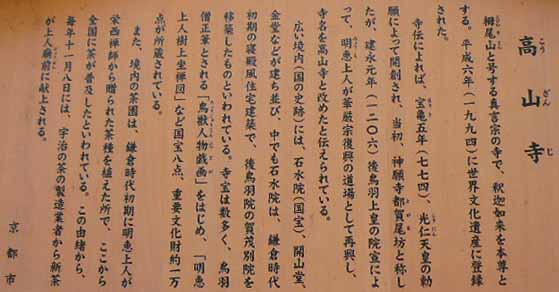 高山寺
こうざんじ
栂尾山と号する真言宗の寺で、釈迦如来を本尊と
する。平成六年（一九九四）に世界文化遺産に登録
された。
寺伝によれば、宝亀五年（七七四）、光仁天皇の勅
願によって開創され、当初、神願寺都賀尾坊と称し
たが、建永元年（一二〇六）後鳥羽上皇の院宣によ
って、明恵上人が華厳宗復興の道場として再興し、
寺名を高山寺と改めたと伝えられている。
広い境内（国の史跡）には、石水院（国宝）、開山堂、
金堂などが建ち並び、中でも石水院は、鎌倉時代
初期の寝殿風住宅建築で、後鳥羽院の賀茂別院を
移築したものといわれている。寺宝は数多く、鳥羽
僧正筆とされる「鳥獣人物戯画」をはじめ、「明恵
上人樹上坐禅図」など国宝八点、重要文化財約一万
点が所蔵されている。
また、境内の茶園は、鎌倉時代初期に明恵上人が
栄西禅師から贈られた茶種を植えた所で、ここから
全国に茶が普及したといわれている。この由緒から、
毎年十一月八日には、宇治の茶の製造業者から新茶
が上人廟前に献上される。
京都市